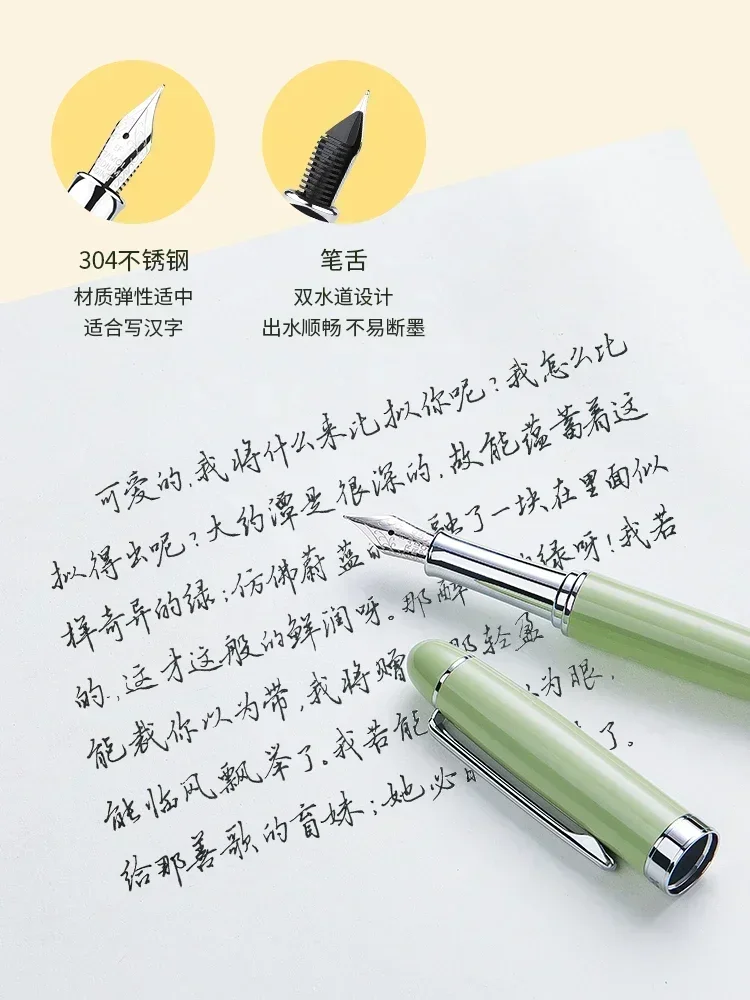 304不锈钢
材质弹性适中
适合写汉字
笔舌
双水道设计
出水顺畅 不易断墨
可爱的,我将什么来比拟你呢?我怎么比
拟得出呢?大约潭是很深的,故能蕴蓄着这
样奇异的绿;仿佛蔚蓝的融了一块在里面似
的,这才这般的鲜润呀。那醉绿呀!我若
能裁你以为带,我将赠那轻盈
能临风飘举了。我若能为眼,
给那善歌的盲妹;她必了。